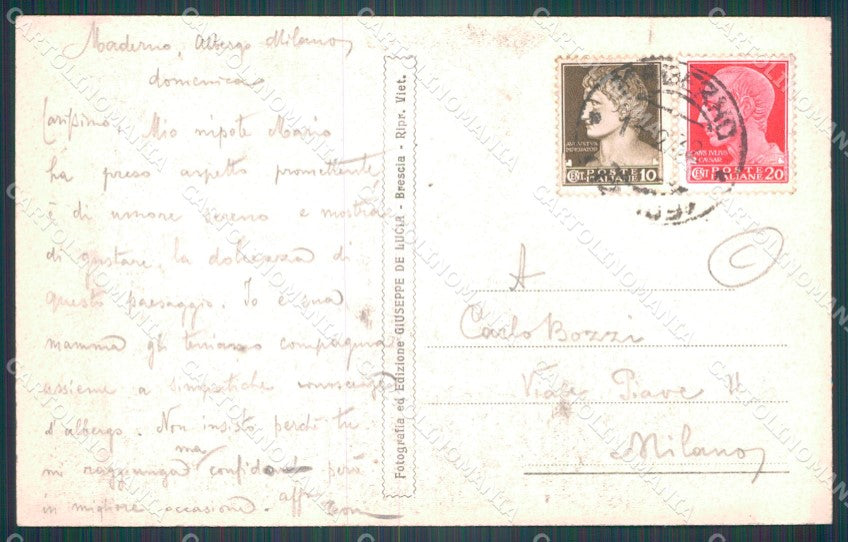 Maderno, Albergo Milano
domenica
Carissimo. Mio nipote Mario
ha preso aspetto promettente
è di umore sereno e mostra
di gustare la dolcezza di
questo paesaggio. Io e sua
mamma gli teniamo compagnia
assieme a simpatiche conoscenze
d'albergo. Non insisto perché tu
mi raggiunga ma confido però
in migliore occasione. aff
Fotografia ed Edizione GIUSEPPE DE LUCIA - Brescia - Ripr. Viet.
AVGVSTVS
IMPERATOR
CENT. POSTE ITALIANE 10
CAIVS IVLIVS
CAESAR
CENT. POSTE ITALIANE 20
MADERNO
A
Carlo Bozzi
Viale Piave
Milano
CARTOLINOMANIA